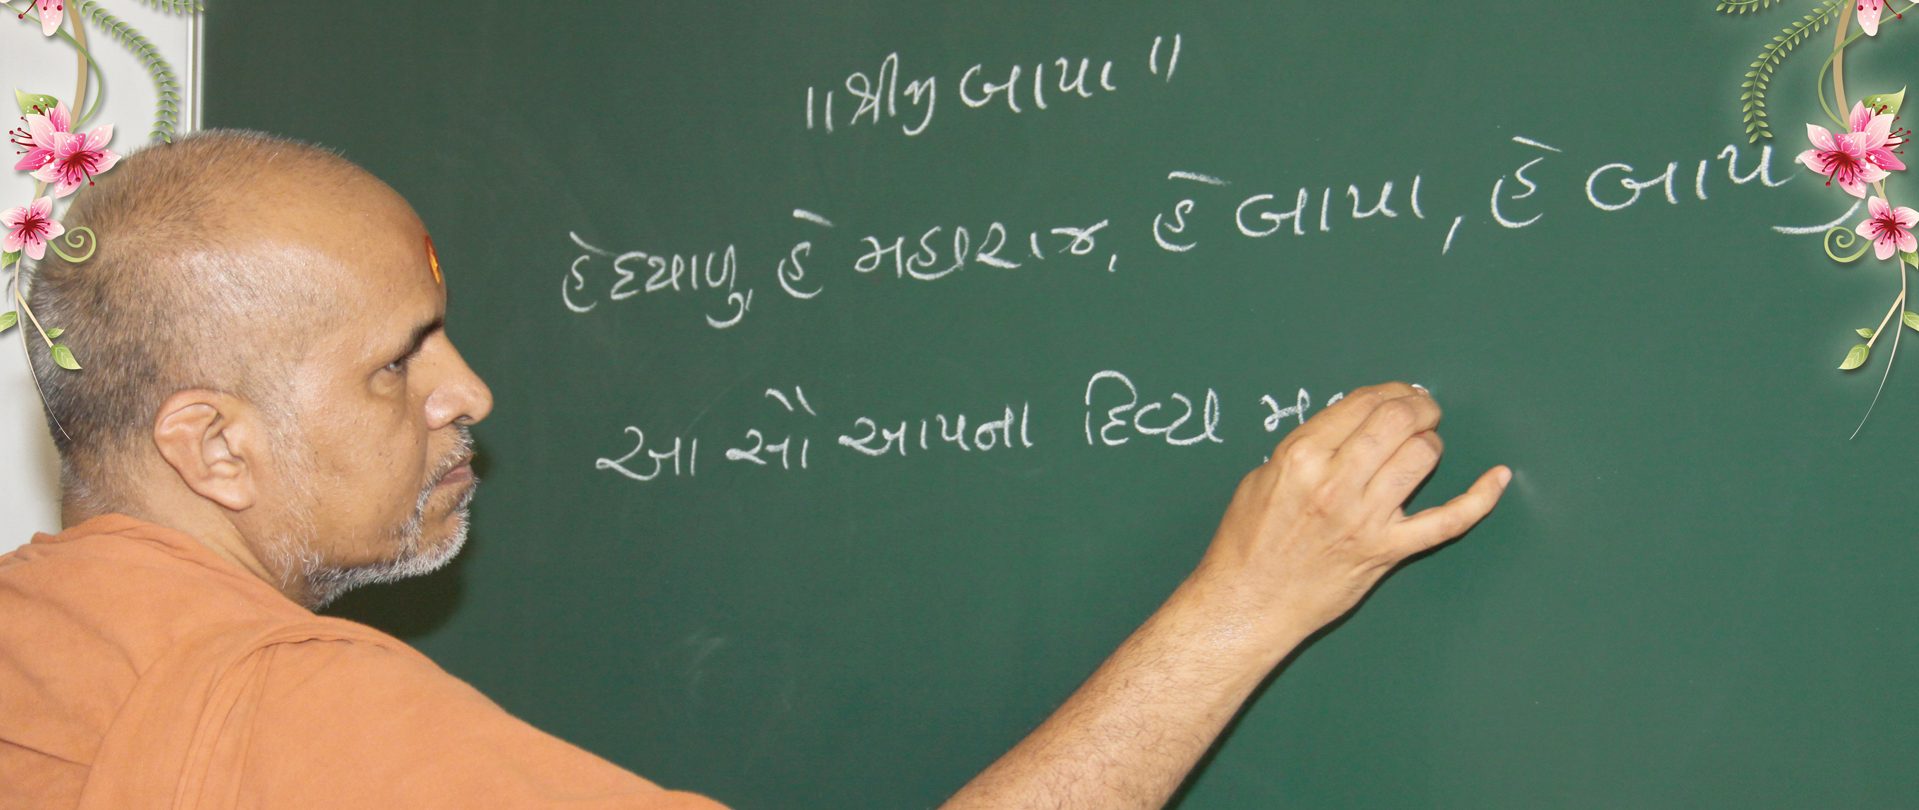 ॥ શ્રીજી બાપા ॥
હે દયાળુ, હે મહારાજ, હે બાપા, હે
આ સૌ આપના દિવ્ય